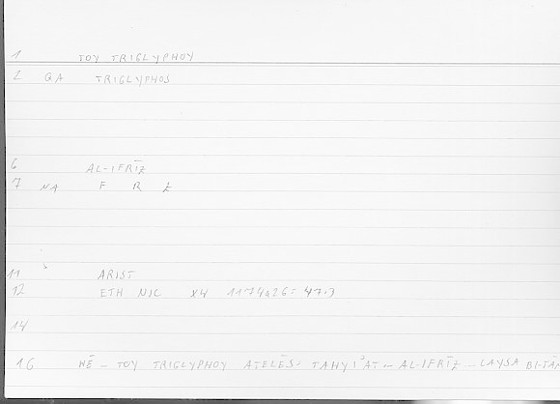 1 TOY TRIGLYPHOY
2 QA TRIGLYPHOS
6 AL-IFRĪZ
7 NA F R Z
11 ARIST
12 ETH NIC X4 1174a26 = 47.3
14
16 HĒ - TOY TRIGLYPHOY ATELĒS: TAHYI'AT - AL-IFRĪZ - LAYSA